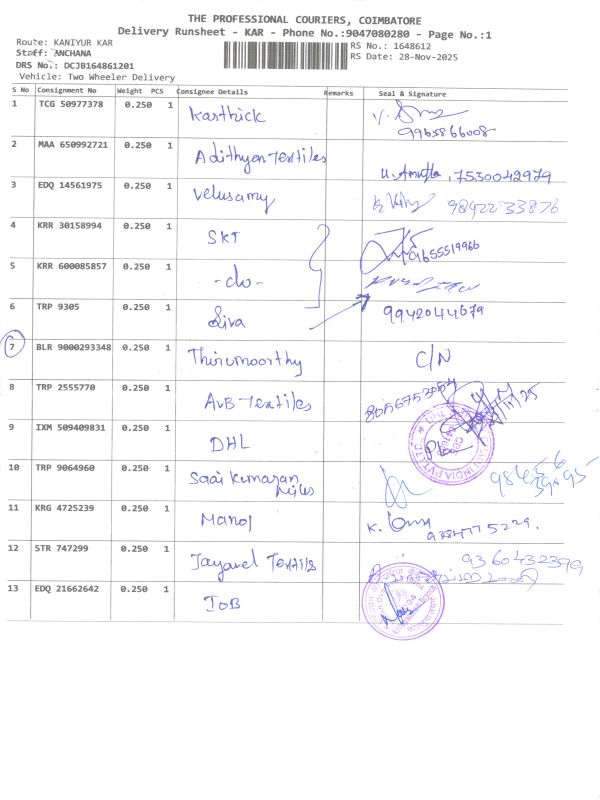 THE PROFESSIONAL COURIERS, COIMBATORE
Delivery Runsheet - KAR - Phone No.:9047080280 - Page No.:1
Route: KANIYUR KAR
RS No.: 1648612
Staff: ANCHANA
RS Date: 28-Nov-2025
DRS No.: DCJB164861201
Vehicle: Two Wheeler Delivery
S No Consignment No Weight PCS Consignee Details Remarks Seal & Signature
1 TCG 50977378 0.250 1 Karthick
9965866008
2 MAA 650992721 0.250 1 Adithyan Textiles
7530042979
3 EDQ 14561975 0.250 1 Velusamy 9842233876
4 KRR 30158994 0.250 1 SKT
9655519966
5 KRR 600085857 0.250 1 -do-
6 TRP 9305 0.250 1 Siva 9942044679
7 BLR 9000293348 0.250 1 Thirumoorthy C/N
8 TRP 2555770 0.250 1 AVB Textiles
9 IXM 509409831 0.250 1 DHL
10 TRP 9064960 0.250 1 Saai Kumaran
Mills
11 KRG 4725239 0.250 1 Manoj K.
12 STR 747299 0.250 1 Jayavel Textils 9360432399
13 EDQ 21662642 0.250 1 IOB